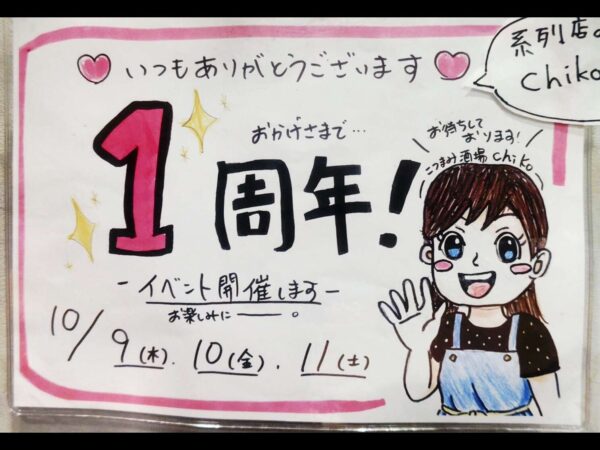 いつもありがとうございます
系列店の
Chiko
おかげさまで…
1周年!
お待ちして
おります!
こつまみ酒場 chiko
-イベント開催します-
お楽しみに――。
10/9(木).10(金).11(土)